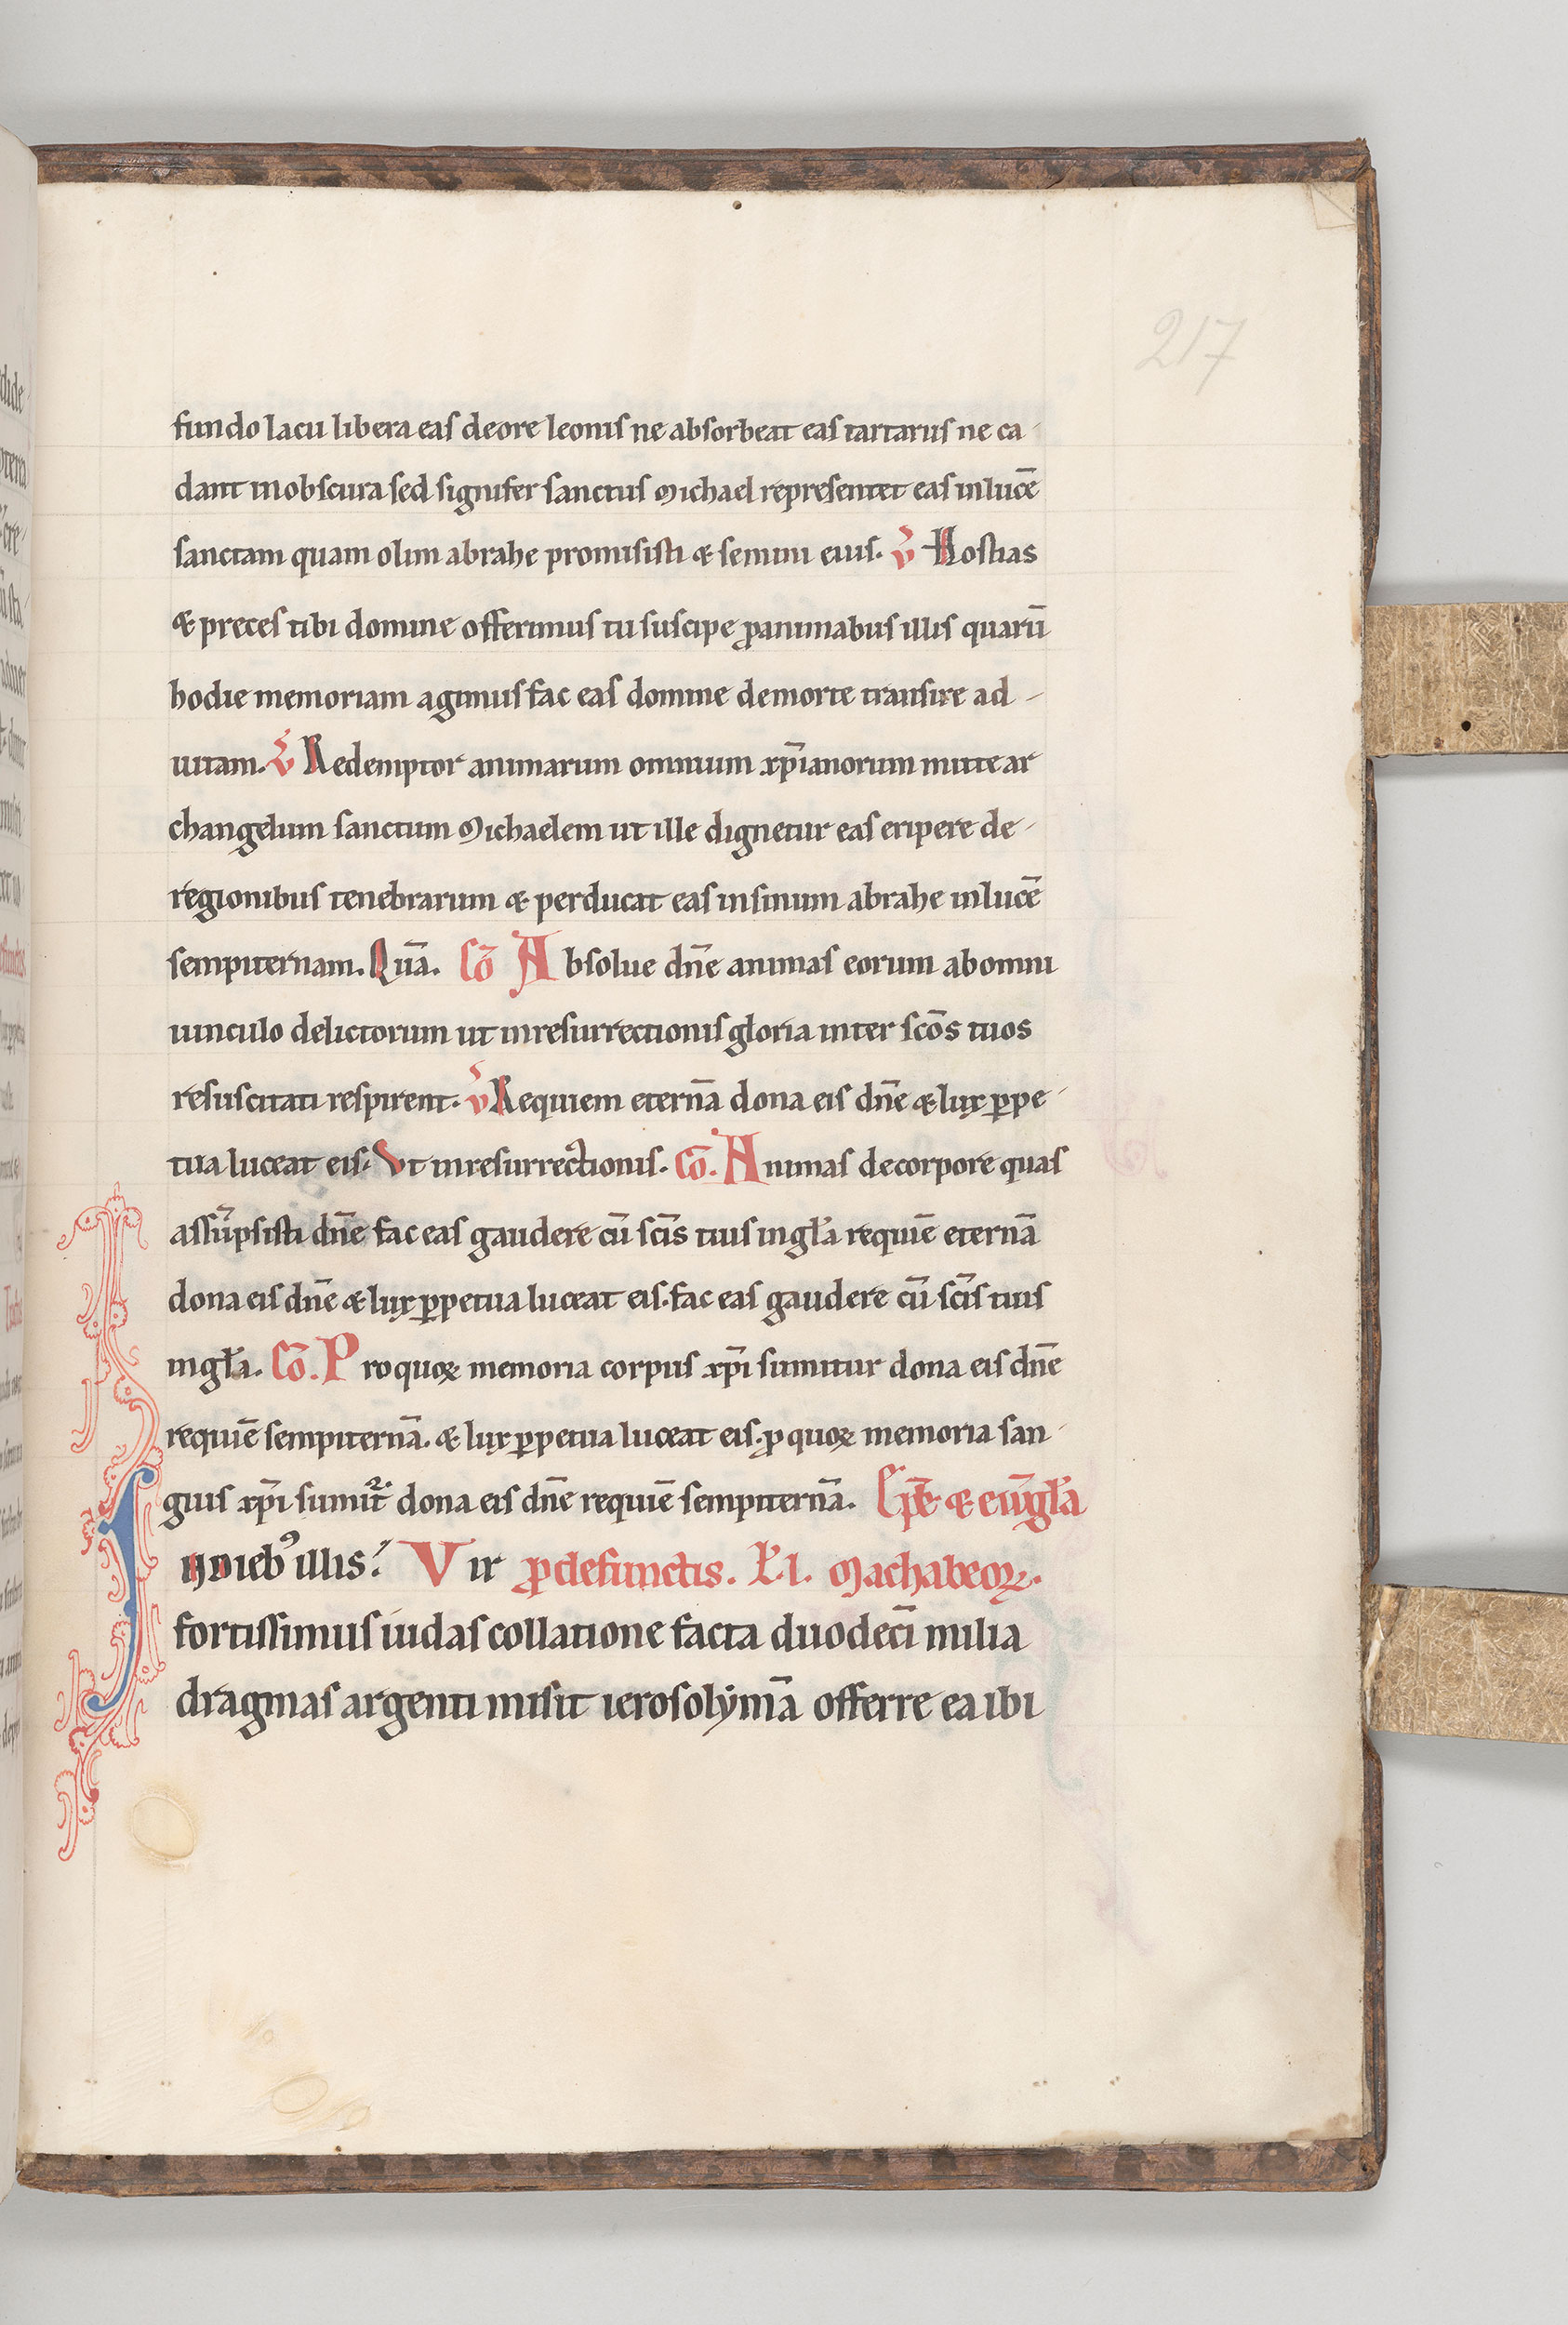 217
fundo lacu libera eas deore leonis ne absorbeat eas tartarus ne ca-
dant inobscura sed signifer sanctus Michael representet eas inlucē
sanctam quam olim abrahe promisisti & semini eius. v̄ Hostias
& preces tibi domine offerimus tu suscipe ꝓanimabus illis quarū
hodie memoriam agimus fac eas domine demorte transire ad-
uitam. v̄ Redemptor animarum omnium xp̄ianorum mitte ar
changelum sanctum Michaelem ut ille dignetur eas eripere de-
regionibus tenebrarum & perducat eas insinum abrahe inlucē
sempiternam. Quā. Cō Absolue dn̄e animas eorum abomni
uinculo delictorum ut inresurrectionis gloria inter scōs tuos
resuscitati respirent. v̄ Requiem eternā dona eis dn̄e & lux ꝑpe-
tua luceat eis. Vt inresurrectionis. Cō. Animas decorpore quas
assūpsisti dn̄e fac eas gaudere cū scīs tuis inglā requiē eternā
dona eis dn̄e & lux ꝑpetua luceat eis. fac eas gaudere cū scīs tuis
inglā. Cō. Pro quoꝝ memoria corpus xp̄i sumitur dona eis dn̄e
requiē sempiternā. & lux ꝑpetua luceat eis. ꝓ quoꝝ memoria san-
guis xp̄i sumit᷑ dona eis dn̄e requiē sempiternā. Ep̄e & eūglā
IN DIEBꝰ illis. Vir ꝓdefunctis. L. I. Machabeoꝝ.
fortissimus iudas collatione facta duodecī milia
dragmas argenti misit ierosolymā offerre ea ibi